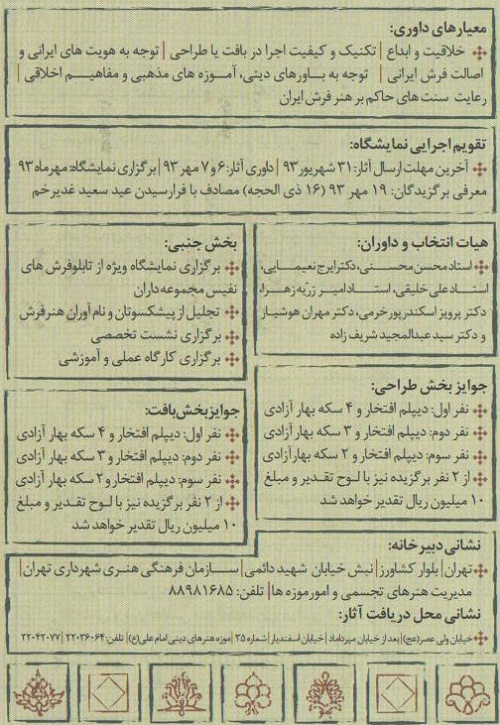 معیارهای داوری:
خلاقیت و ابداع | تکنیک و کیفیت اجرا در بافت یا طراحی | توجه به هویت های ایرانی و
اصالت فرش ایرانی | توجه به باورهای دینی، آموزه های مذهبی و مفاهیم اخلاقی |
رعایت سنت های حاکم بر هنر فرش ایران
تقویم اجرایی نمایشگاه:
آخرین مهلت ارسال آثار: ۳۱ شهریور ۹۳ | داوری آثار: ۶ و ۷ مهر ۹۳ | برگزاری نمایشگاه: مهرماه ۹۳
معرفی برگزیدگان: ۱۹ مهر ۹۳ (۱۶ ذی الحجه) مصادف با فرارسیدن عید سعید غدیرخم
هیات انتخاب و داوران:
استاد محسن محسنی، دکتر ایرج نعیمایی،
استاد علی خلیقی، استاد امیر زریه زهرا،
دکتر پرویز اسکندرپور خرمی، دکتر مهران هوشیار
و دکتر سید عبدالمجید شریف زاده
بخش جنبی:
برگزاری نمایشگاه ویژه از تابلوفرش های
نفیس مجموعه داران
تجلیل از پیشکسوتان و نام آوران هنر فرش
برگزاری نشست تخصصی
برگزاری کارگاه عملی و آموزشی
جوایز بخش طراحی:
نفر اول: دیپلم افتخار و ۴ سکه بهار آزادی
نفر دوم: دیپلم افتخار و ۳ سکه بهار آزادی
نفر سوم: دیپلم افتخار و ۲ سکه بهار آزادی
از ۲ نفر برگزیده نیز با لوح تقدیر و مبلغ
۱۰ میلیون ریال تقدیر خواهد شد
جوایز بخش بافت:
نفر اول: دیپلم افتخار و ۴ سکه بهار آزادی
نفر دوم: دیپلم افتخار و ۳ سکه بهار آزادی
نفر سوم: دیپلم افتخار و ۲ سکه بهار آزادی
از ۲ نفر برگزیده نیز با لوح تقدیر و مبلغ
۱۰ میلیون ریال تقدیر خواهد شد
نشانی دبیرخانه:
تهران | بلوار کشاورز | نبش خیابان شهید دائمی | سازمان فرهنگی هنری شهرداری تهران |
مدیریت هنرهای تجسمی و امور موزه ها | تلفن: ۸۸۹۸۱۶۸۵
نشانی محل دریافت آثار:
خیابان ولی عصر(عج) | بعد از خیابان میرداماد | خیابان اسفندیار | شماره ۳۵ | موزه هنرهای دینی امام علی(ع) | تلفن: ۲۲۰۳۶۰۶۴ | ۲۲۰۴۲۰۷۷